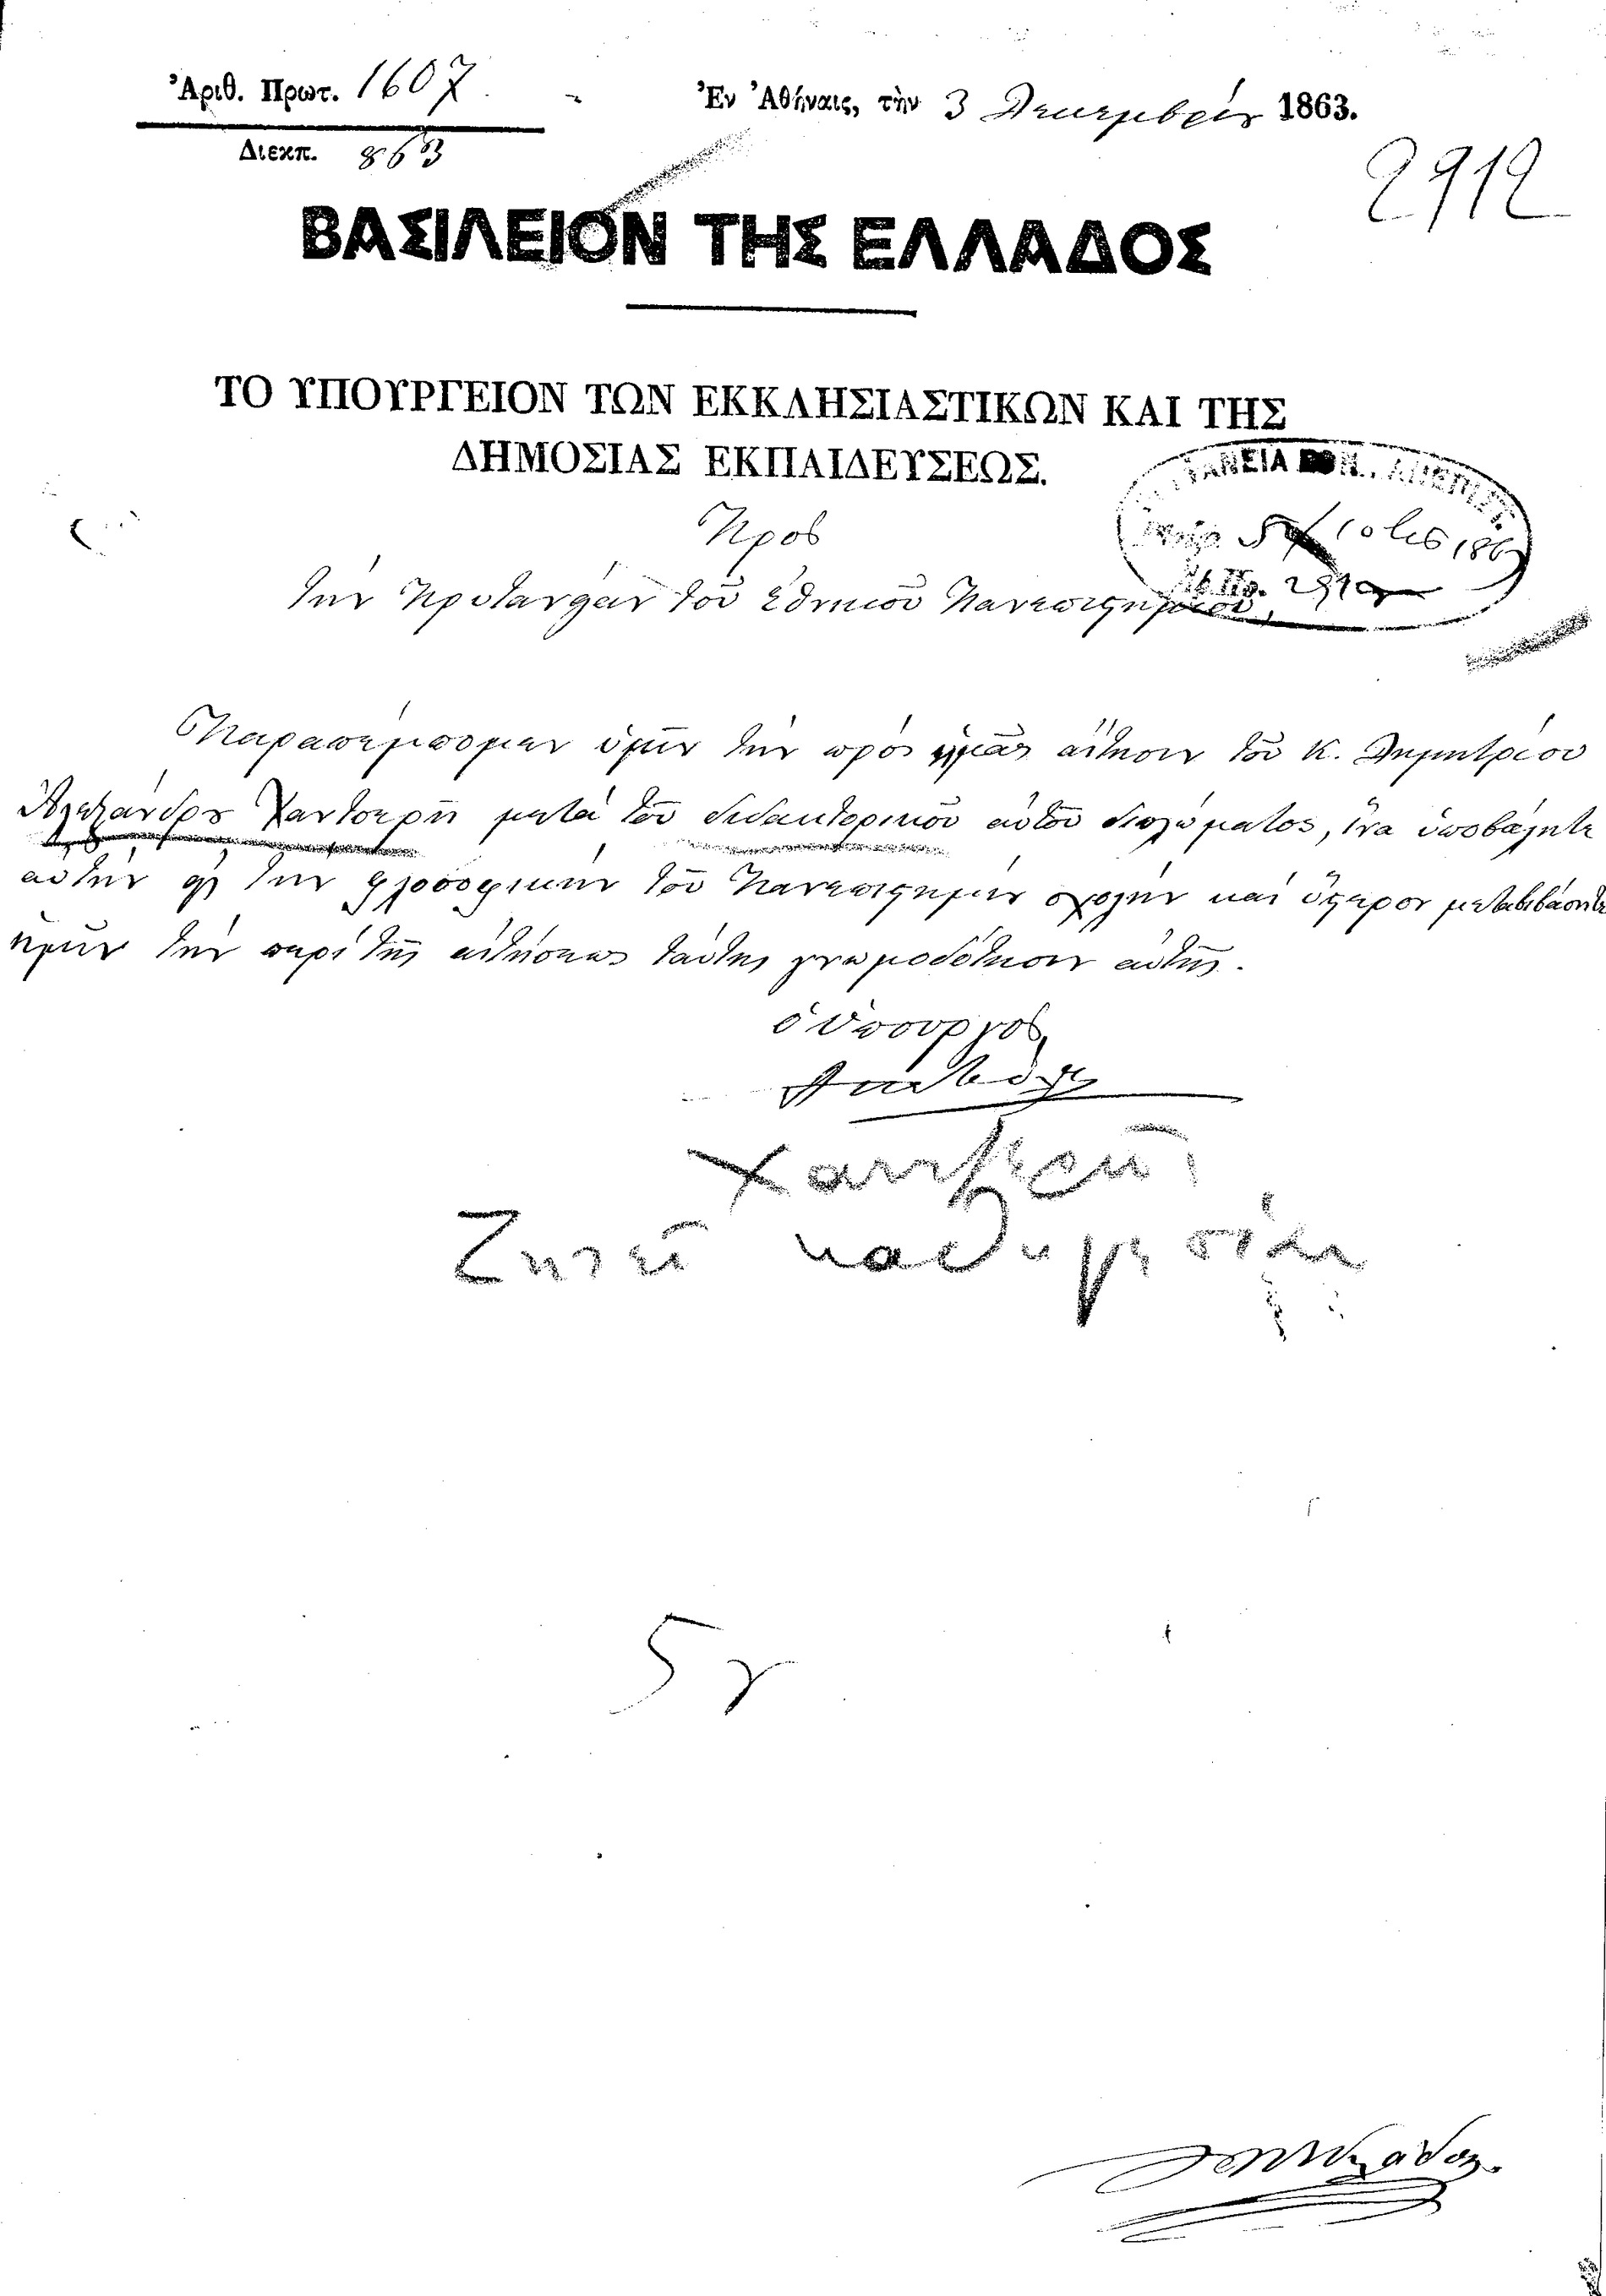 Ἀριθ. Πρωτ. 1607
Διεκπ. 863
Ἐν Ἀθήναις, τὴν 3 Δεκεμβρίου 1863.
2912
ΒΑΣΙΛΕΙΟΝ ΤΗΣ ΕΛΛΑΔΟΣ
ΤΟ ΥΠΟΥΡΓΕΙΟΝ ΤΩΝ ΕΚΚΛΗΣΙΑΣΤΙΚΩΝ ΚΑΙ ΤΗΣ
ΔΗΜΟΣΙΑΣ ΕΚΠΑΙΔΕΥΣΕΩΣ.
Πρὸς
τὴν Πρυτανείαν τοῦ Ἐθνικοῦ Πανεπιστημίου
Παραπέμπομεν ὑμῖν τὴν πρὸς ἡμᾶς αἴτησιν τοῦ Κ. Δημητρίου
Ἀλεξάνδρου Χαντσερῆ μετὰ τοῦ διδακτορικοῦ αὐτοῦ διπλώματος, ἵνα ὑποβάλητε
αὐτὴν εἰς τὴν φιλοσοφικὴν τοῦ Πανεπιστημίου σχολὴν καὶ ὕστερον μεταβιβάσητε
ἡμῖν τὴν περὶ τῆς αἰτήσεως ταύτης γνωμοδότησιν αὐτῆς.
ὁ Ὑπουργὸς
Ζητεῖ καθηγεσίαν